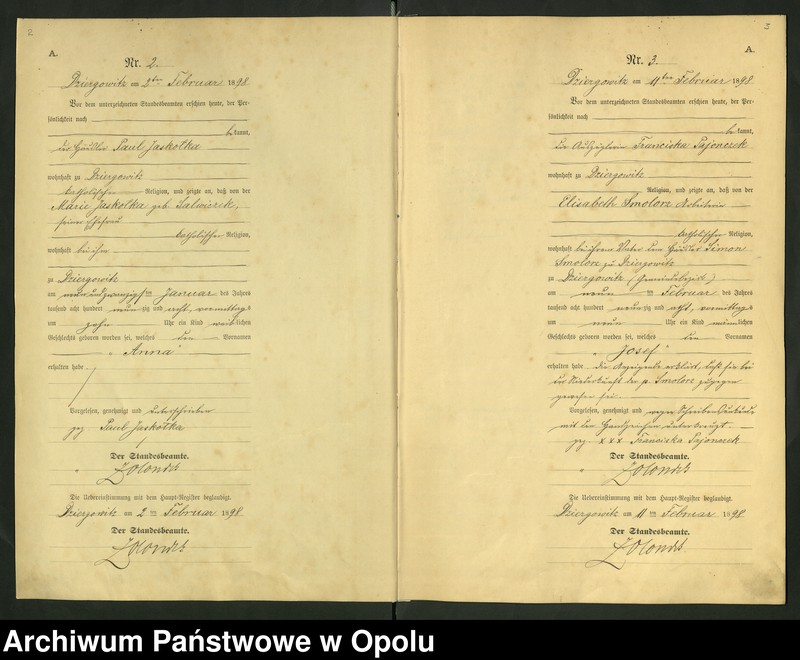 2
A.
Nr. 2.
Dziergowitz am 2ten Februar 1898
Vor dem unterzeichneten Standesbeamten erschien heute, der Per-
sönlichkeit nach
bekannt,
der Häusler Paul Jaskolka
wohnhaft zu Dziergowitz
katholischer Religion, und zeigte an, daß von der
Marie Jaskolka geb. Salwiczek,
seiner Ehefrau
katholischer Religion,
wohnhaft bei ihm
zu Dziergowitz
am neunundzwanzigsten Januar des Jahres
tausend acht hundert neunzig und acht, vormittags
um zehn Uhr ein Kind weiblichen
Geschlechts geboren worden sei, welches den Vornamen
"Anna"
erhalten habe
Vorgelesen, genehmigt und unterschrieben
gez. Paul Jaskolka
Der Standesbeamte.
Die Uebereinstimmung mit dem Haupt-Register beglaubigt.
Dziergowitz am 2ten Februar 1898
Der Standesbeamte.
3
A.
Nr. 3.
Dziergowitz am 11ten Februar 1898
Vor dem unterzeichneten Standesbeamten erschien heute, der Per-
sönlichkeit nach
bekannt,
die Auszüglerin Franciska Pajonczek
wohnhaft zu Dziergowitz
Religion, und zeigte an, daß von der
Elisabeth Smolorz Arbeiterin
katholischer Religion,
wohnhaft bei ihrem Vater dem Häusler Simon
Smolorz zu Dziergowitz
zu Dziergowitz (Gemeindebezirk)
am neunten Februar des Jahres
tausend acht hundert neunzig und acht, vormittags
um neun Uhr ein Kind männlichen
Geschlechts geboren worden sei, welches den Vornamen
"Josef"
erhalten habe. Die Anzeigende erklärt, daß sie bei
der Niederkunft der p. Smolorz zugegen
gewesen sei.
Vorgelesen, genehmigt und wegen Schreibensunkunde
mit den Handzeichen unterkreuzt.
gez. x x x Franciska Pajonczek
Der Standesbeamte.
Die Uebereinstimmung mit dem Haupt-Register beglaubigt.
Dziergowitz am 11ten Februar 1898
Der Standesbeamte.
Archiwum Państwowe w Opolu